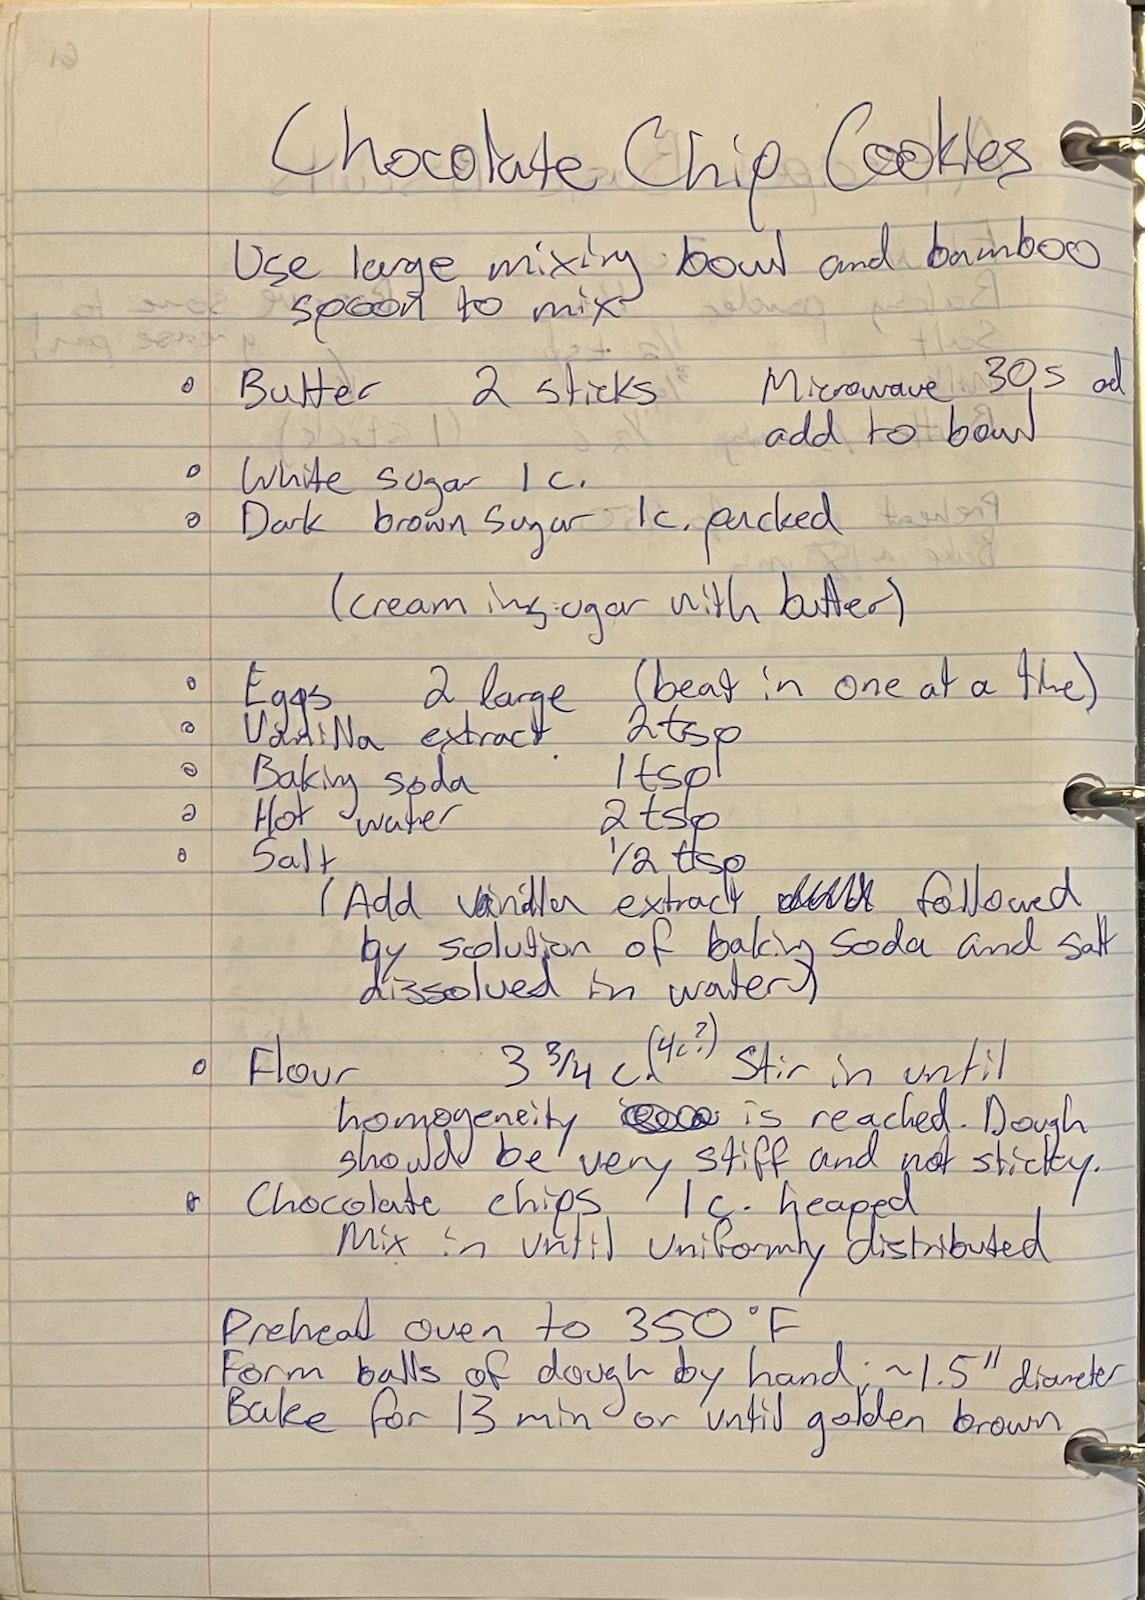 Chocolate Chip Cookies
Use large mixing bowl and bamboo
spoon to mix
Butter 2 sticks Microwave 30s ad
add to bowl
White sugar 1 c.
Dark brown sugar 1c. packed
(cream in sugar with butter)
Eggs 2 large (beat in one at a time)
Vanilla extract 2 tsp
Baking soda 1 tsp
Hot water 2 tsp
Salt 1/2 tsp
(Add vanilla extract followed
by solution of baking soda and salt
dissolved in water)
Flour 3 3/4 c. (4c?) Stir in until
homogeneity is reached. Dough
should be very stiff and not sticky.
Chocolate chips 1 c. heaped
Mix in until uniformly distributed
Preheat oven to 350°F
Form balls of dough by hand; ~1.5" diameter
Bake for 13 min or until golden brown